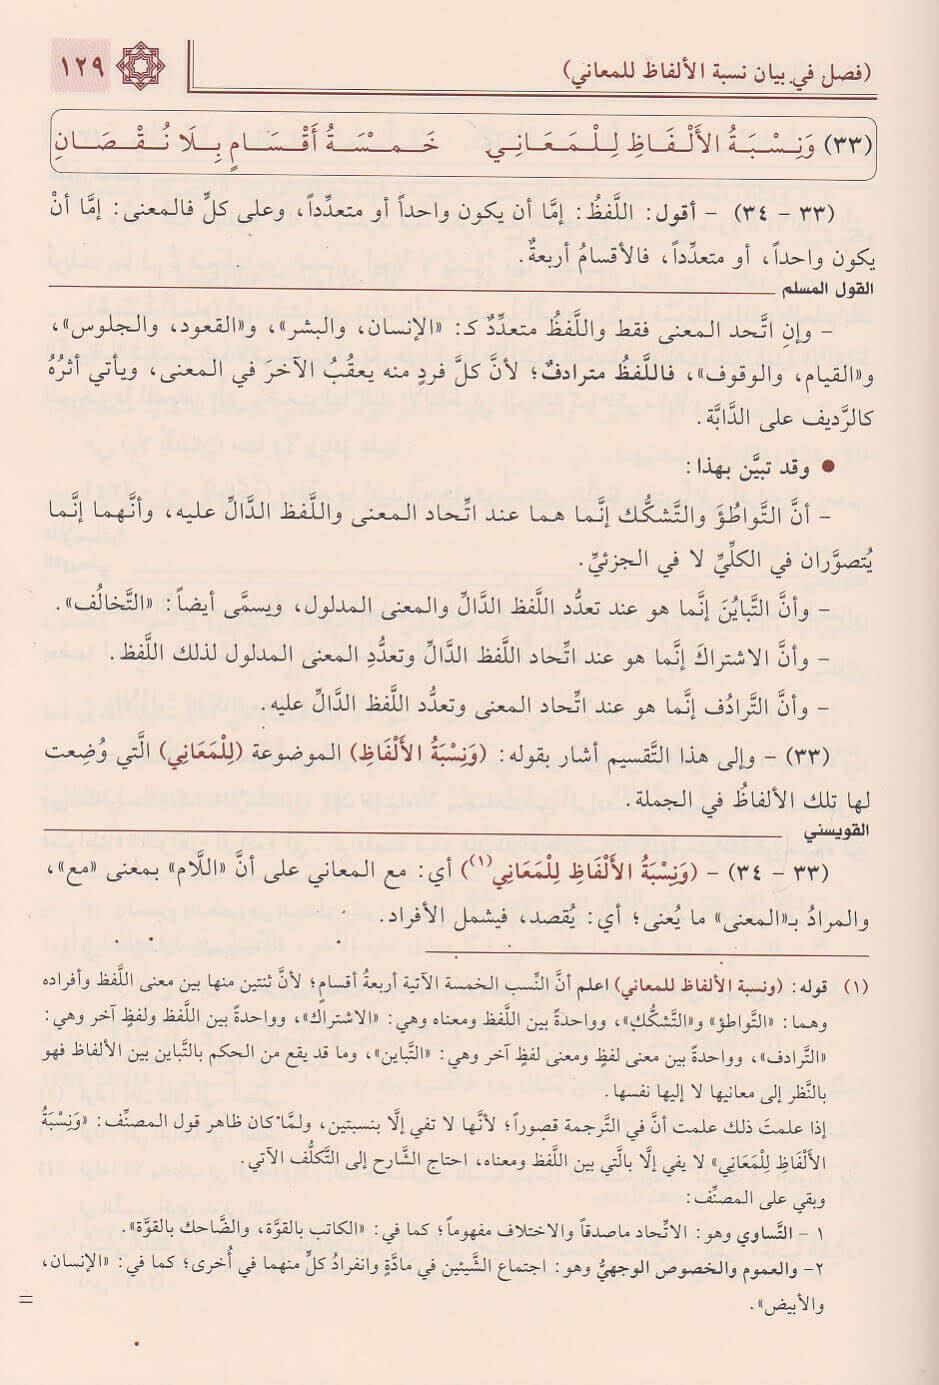 (فصل في بيان نسبة الألفاظ للمعاني)
١٢٩
(٣٣) وَنِسْبَةُ الأَلْفَاظِ لِلْمَعَانِي خَمْسَةُ أَقْسَامٍ بِلَا نُقْصَانِ
(٣٣ - ٣٤) - أقول: اللَّفظُ: إمَّا أن يكون واحداً أو متعدِّداً، وعلى كلٍّ فالمعنى: إمَّا أنْ
يكون واحداً، أو متعدِّداً، فالأقسامُ أربعةٌ.
القول المسلم
- وإنِ اتَّحد المعنى فقط واللَّفظُ متعدِّدٌ كـ: «الإنسان، والبشر»، و«القعود، والجلوس»،
و«القيام، والوقوف»، فاللَّفظُ مترادفٌ؛ لأنَّ كلَّ فردٍ منه يعقُبُ الآخرَ في المعنى، ويأتي أثرُهُ
كالرَّديف على الدَّابَّة.
• وقد تبيَّن بهذا:
- أنَّ التَّواطُؤَ والتَّشكُّك إنَّما هما عند اتِّحاد المعنى واللَّفظ الدَّالِّ عليه، وأنَّهما إنَّما
يُتصوَّران في الكلِّيِّ لا في الجزئيِّ.
- وأنَّ التَّبايُنَ إنَّما هو عند تعدُّد اللَّفظ الدَّالِّ والمعنى المدلول، ويسمَّى أيضاً: «التَّخالُف».
- وأنَّ الاشتراكَ إنَّما هو عند اتِّحاد اللَّفظ الدَّالِّ وتعدُّدِ المعنى المدلول لذلك اللَّفظ.
- وأنَّ التَّرادُف إنَّما هو عند اتِّحاد المعنى وتعدُّد اللَّفظ الدَّالِّ عليه.
(٣٣) - وإلى هذا التَّقسيم أشار بقوله: (وَنِسْبَةُ الأَلْفَاظِ) الموضوعة (لِلْمَعَانِي) الَّتي وُضِعت
لها تلك الألفاظُ في الجملة.
القويسني
(٣٣ - ٣٤) - (وَنِسْبَةُ الأَلْفَاظِ لِلْمَعَانِي(١)) أي: مع المعاني على أنَّ «اللَّام» بمعنى «مع»،
والمرادُ بـ«المعنى» ما يُعنى؛ أي: يُقصد، فيشمل الأفراد.
(١) قوله: (ونسبة الألفاظ للمعاني) اعلم أنَّ النِّسب الخمسة الآتية أربعةُ أقسامٍ؛ لأنَّ ثنتين منها بين معنى اللَّفظ وأفراده
وهما: «التَّواطؤ» و«التَّشكُّكِ»، وواحدةً بين اللَّفظ ومعناه وهي: «الاشتراك»، وواحدةً بين اللَّفظ ولفظٍ آخر وهي:
«التَّرادف»، وواحدةً بين معنى لفظٍ ومعنى لفظٍ آخر وهي: «التَّباين»، وما قد يقع من الحكم بالتَّباين بين الألفاظ فهو
بالنَّظر إلى معانيها لا إليها نفسها.
إذا علمتَ ذلك علمت أنَّ في التَّرجمة قصوراً؛ لأنَّها لا تفي إلَّا بنسبتين، ولمَّا كان ظاهر قول المصنِّف: «وَنِسْبَةُ
الأَلْفَاظِ لِلْمَعَانِي» لا يفي إلَّا بالَّتي بين اللَّفظ ومعناه، احتاج الشَّارح إلى التَّكلُّف الآتي.
وبقي على المصنِّف:
١ - التَّساوي وهو: الاتِّحاد ماصدقاً والاختلاف مفهوماً؛ كما في: «الكاتب بالقوَّة، والضَّاحك بالقوَّة».
٢- والعموم والخصوص الوجهيُّ وهو: اجتماع الشَّيئين في مادَّةٍ وانفرادُ كلٍّ منهما في أُخرى؛ كما في: «الإنسان،
والأبيض».
=